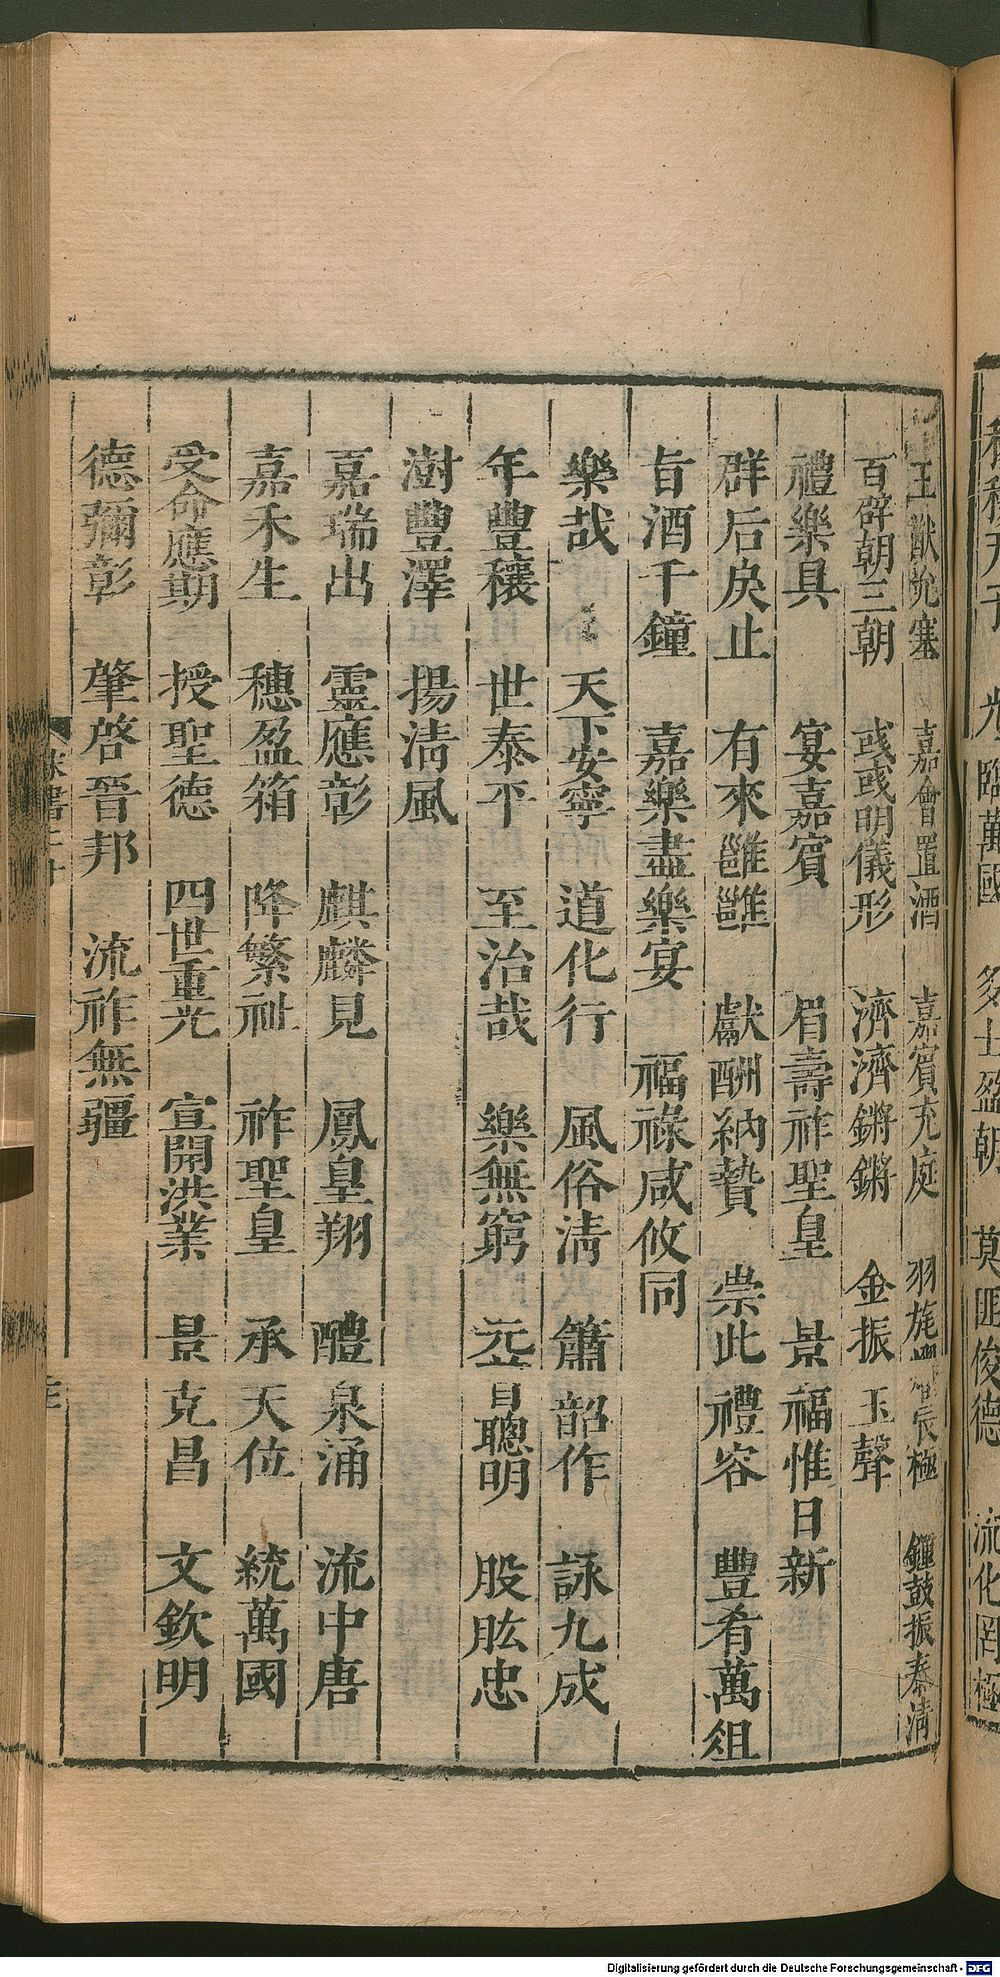 臨萬國　多士盈朝　莫匪俊德　流化罔極
王猷允塞　嘉會置酒　嘉賓充庭　羽旄曜宸極　鍾鼓振泰清
百辟朝三朝　彧彧明儀形　濟濟鏘鏘　金振玉聲
禮樂具　宴嘉賓　眉壽祚聖皇　景福惟日新
群后戾止　有來雝雝　獻酬納贄　崇此禮容　豐肴萬俎
旨酒千鐘　嘉樂盡樂宴　福祿咸攸同
樂哉　天下安寧　道化行　風俗清　簫韶作　詠九成
年豐穰　世泰平　至治哉　樂無窮　元首聰明　股肱忠
澍豐澤　揚清風
嘉瑞出　靈應彰　麒麟見　鳳皇翔　醴泉涌　流中唐
嘉禾生　穗盈箱　降繁祉　祚聖皇　承天位　統萬國
受命應期　授聖德　四世重光　宣開洪業　景克昌　文欽明
德彌彰　肇啓晉邦　流祚無疆
Digitalisierung gefördert durch die Deutsche Forschungsgemeinschaft - DFG